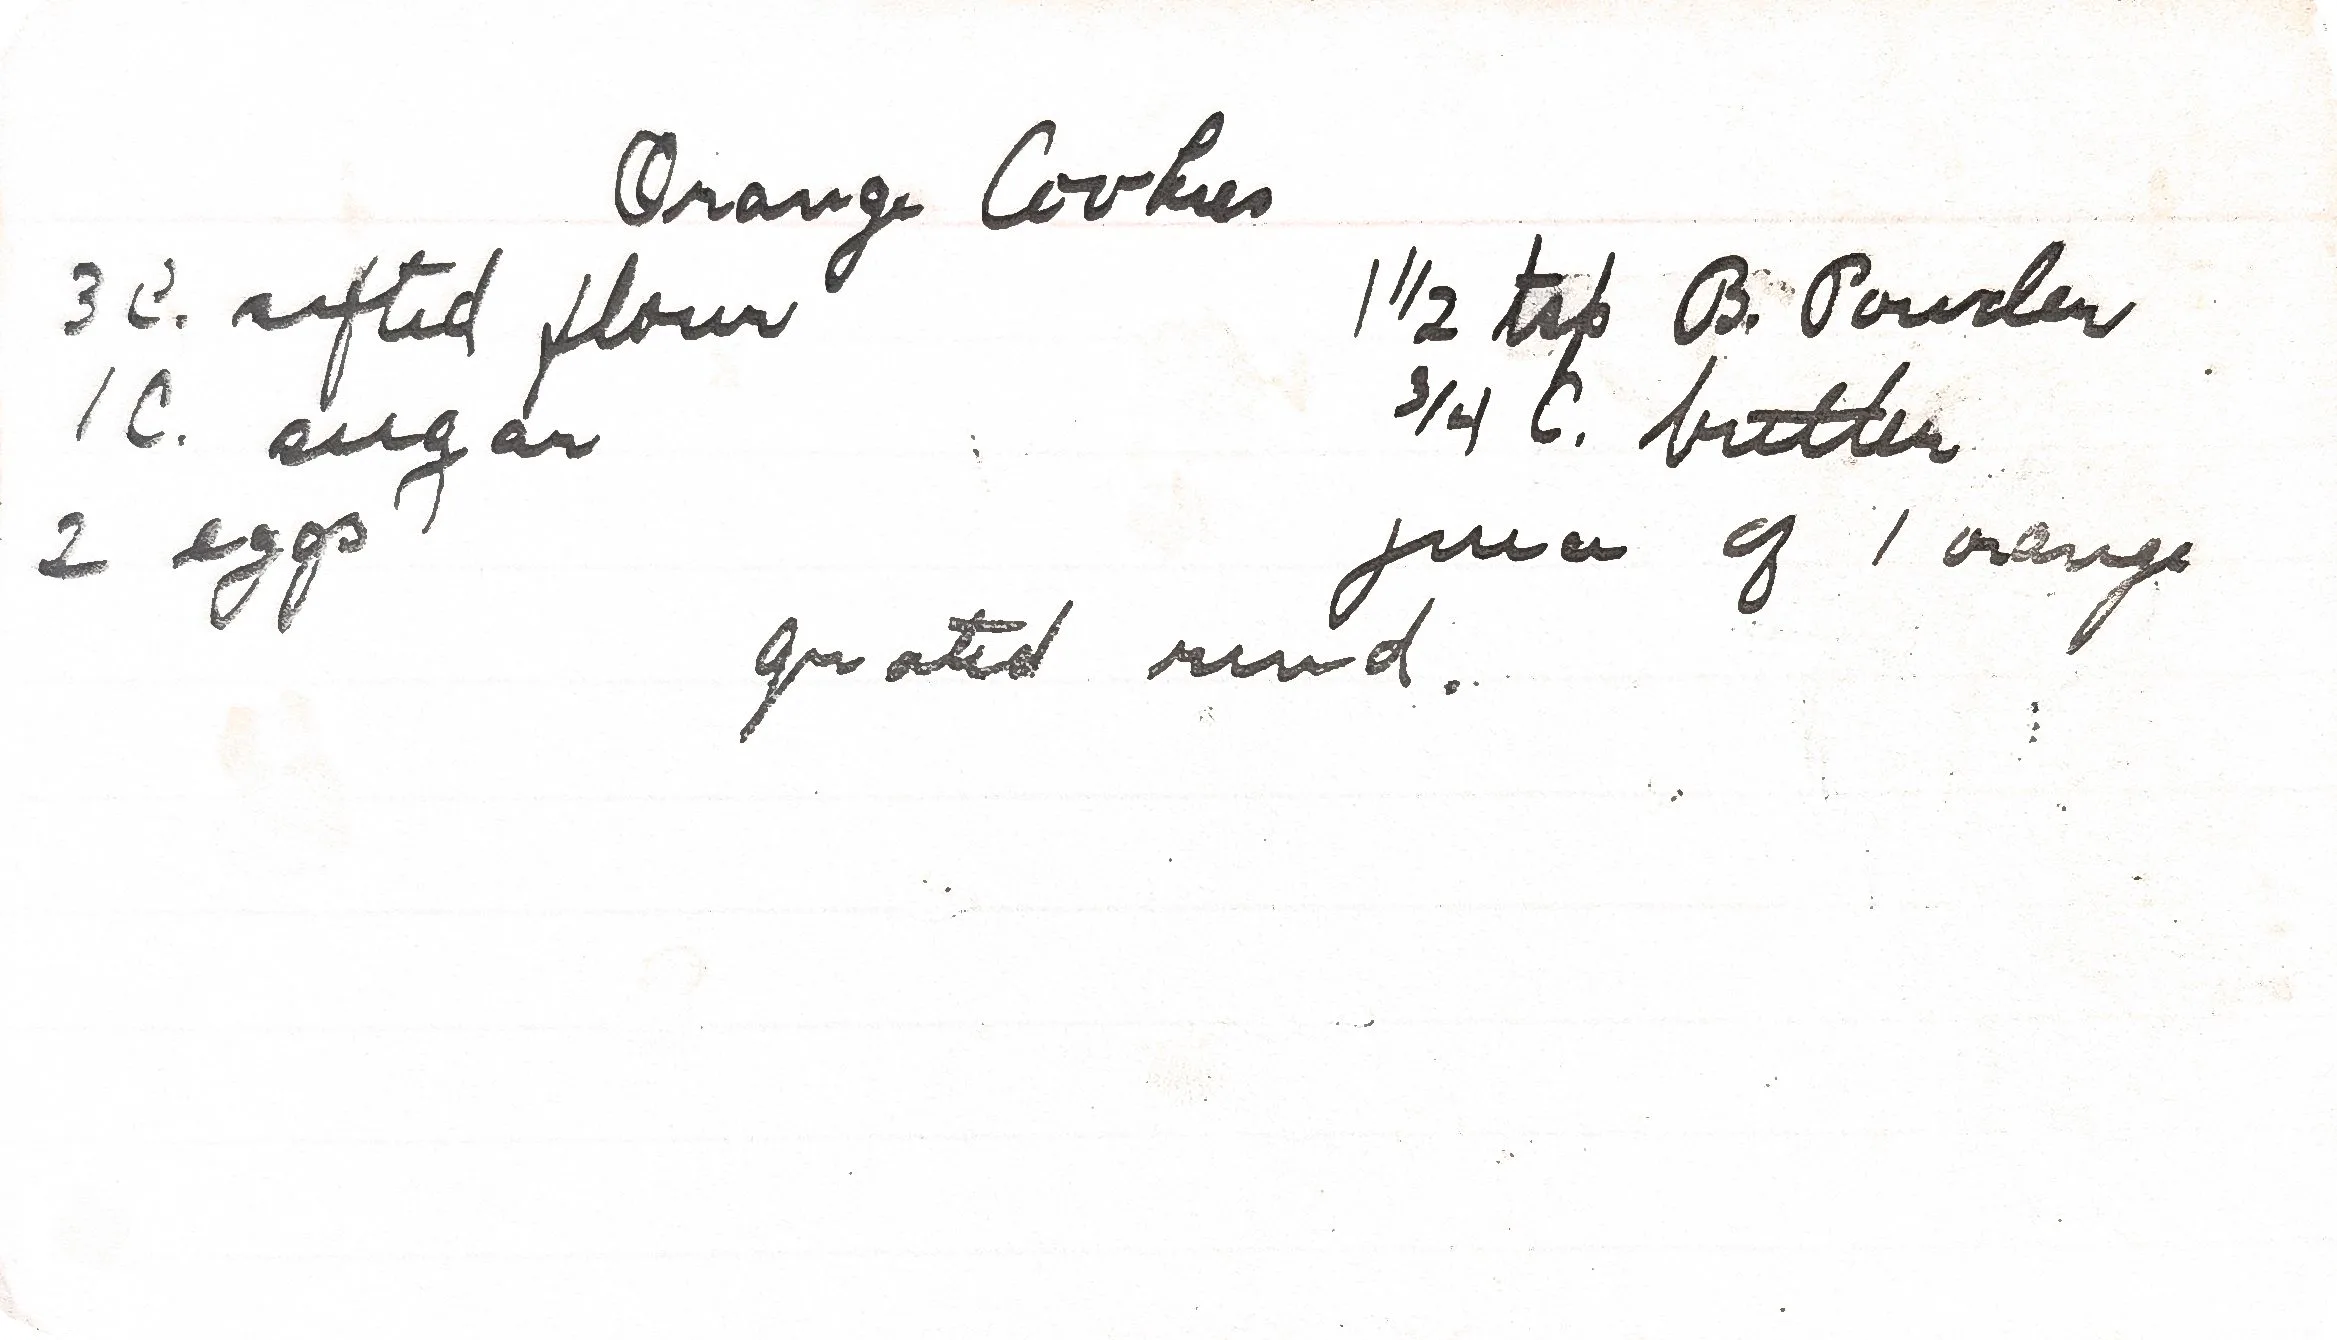 Orange Cookies
3 C. sifted flour 1 1/2 tsp B. Powder
1 C. sugar 3/4 C. butter
2 eggs juice of 1 orange
grated rind.